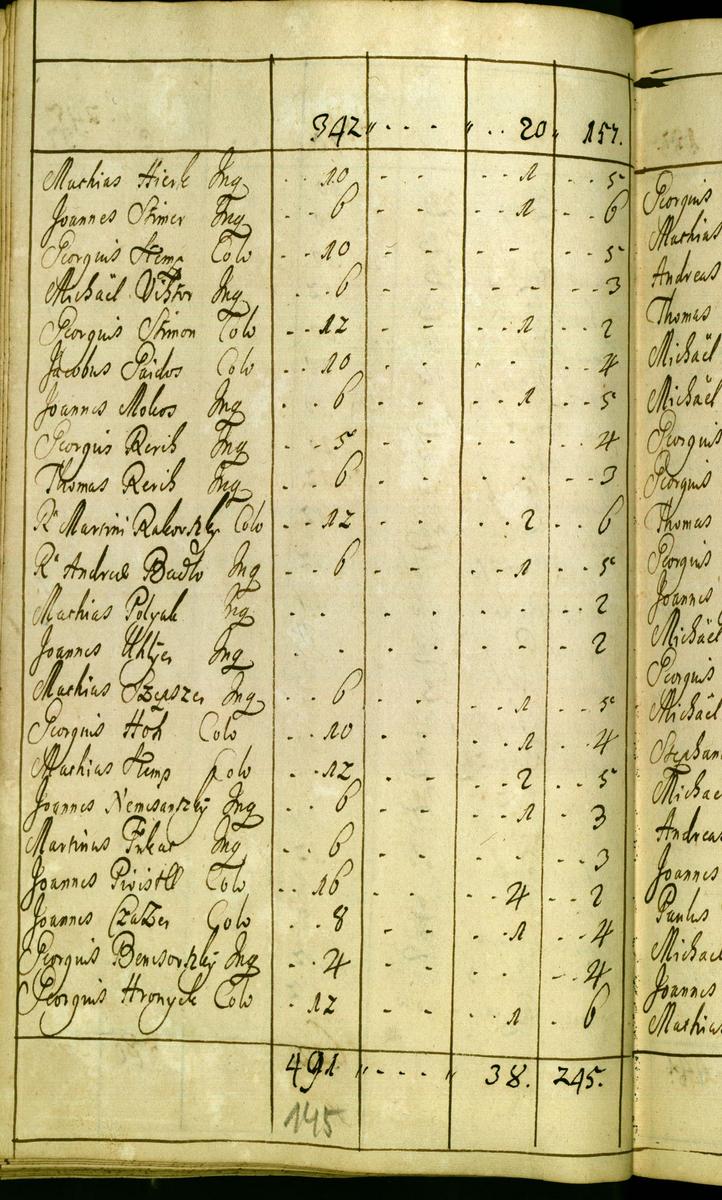 342 " - - - " . . 20 " 157.
Mathias Hierk Inq - . 10 - - . 1 - . 5
Joannes Stiner Inq - . 6 - - . 1 - . 6
Georgius Hemp Colo - . 10 - - - - - . 5
Michaël Viktor Inq - . 6 - - - - - . 3
Georgius Simon Colo - . 12 - - . 1 - . 2
Jacobus Paidos Colo - . 10 - - - - - . 4
Joannes Mokos Inq - . 6 - - . 1 - . 5
Georgius Rerih Inq - . 5 - - - - - . 4
Thomas Rerih Inq - . 6 - - - - - . 3
R. Martini Rakovszky Colo - . 12 - - . 2 - . 6
R. Andreæ Badlo Inq - . 6 - - . 1 - . 5
Mathias Polyak Inq - . . - . . . - . 2
Joannes Uhljer Inq . . . . . . . - . 2
Mathias Inq . . 6 - - . 1 - . 5
Georgius Hoh Colo - . 10 - - . 1 - . 4
Mathias Hemp Colo - . 12 - - . 2 - . 5
Joannes Nemcsanszky Inq - . 6 - - . 1 - . 3
Martinus Inq - . 6 - - - - - . 3
Joannes Colo - . 16 - - . 4 - . 2
Joannes Colo - . 8 - - . 1 - . 4
Georgius Benisovszky Inq - . 4 - - . . - 4
Georgius Hronyek Colo - . 12 - - . 1 . 6
491 " - - - " 38. 245.
145
Georgius
Mathias
Andreas
Thomas
Michaël
Michaël
Georgius
Georgius
Thomas
Georgius
Joannes
Michaël
Georgius
Michaël
Stephan
Michae
Andreas
Joannes
Paulus
Michael
Joannes
Mathias